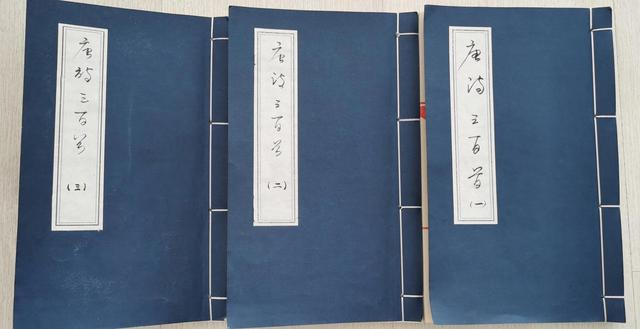 唐诗三百首
(一)
唐诗三百首
(二)
唐诗三百首
(三)